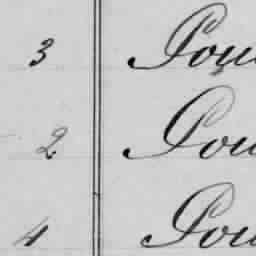 3 Pou
2 Pou
4 Pou